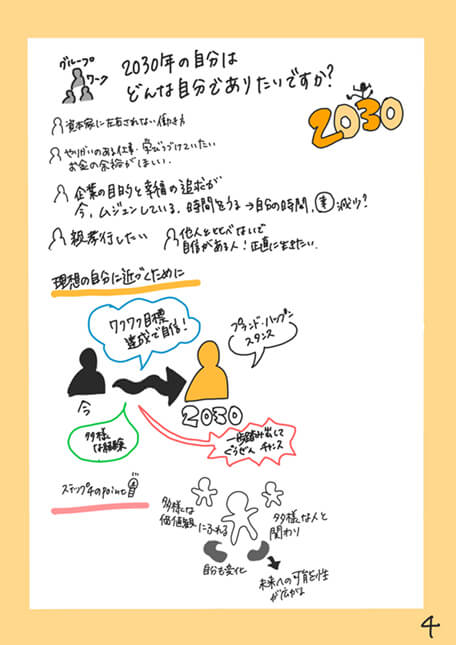 グループ
ワーク
2030年の自分は
どんな自分でありたいですか?
2030
資本家に左右されない働き方
やりがいのある仕事・学びつづけていたい
お金の余裕がほしい.
企業の目的と幸福の追求が
今,ムジュンしている.時間をうる→自分の時間,幸減少?
親孝行したい
他人とくらべないで
自信がある人!正直に生きたい.
理想の自分に近づくために
ワクワク目標
達成で自信!
プランド・ハップン
スタンス
今
2030
多様
な経験
一歩踏み出して
ぐうぜん チャンス
ステップ4のpoint
多様な
価値観にふれる
多様な人と
関わり
自分も変化
未来への可能性
が広がる
4